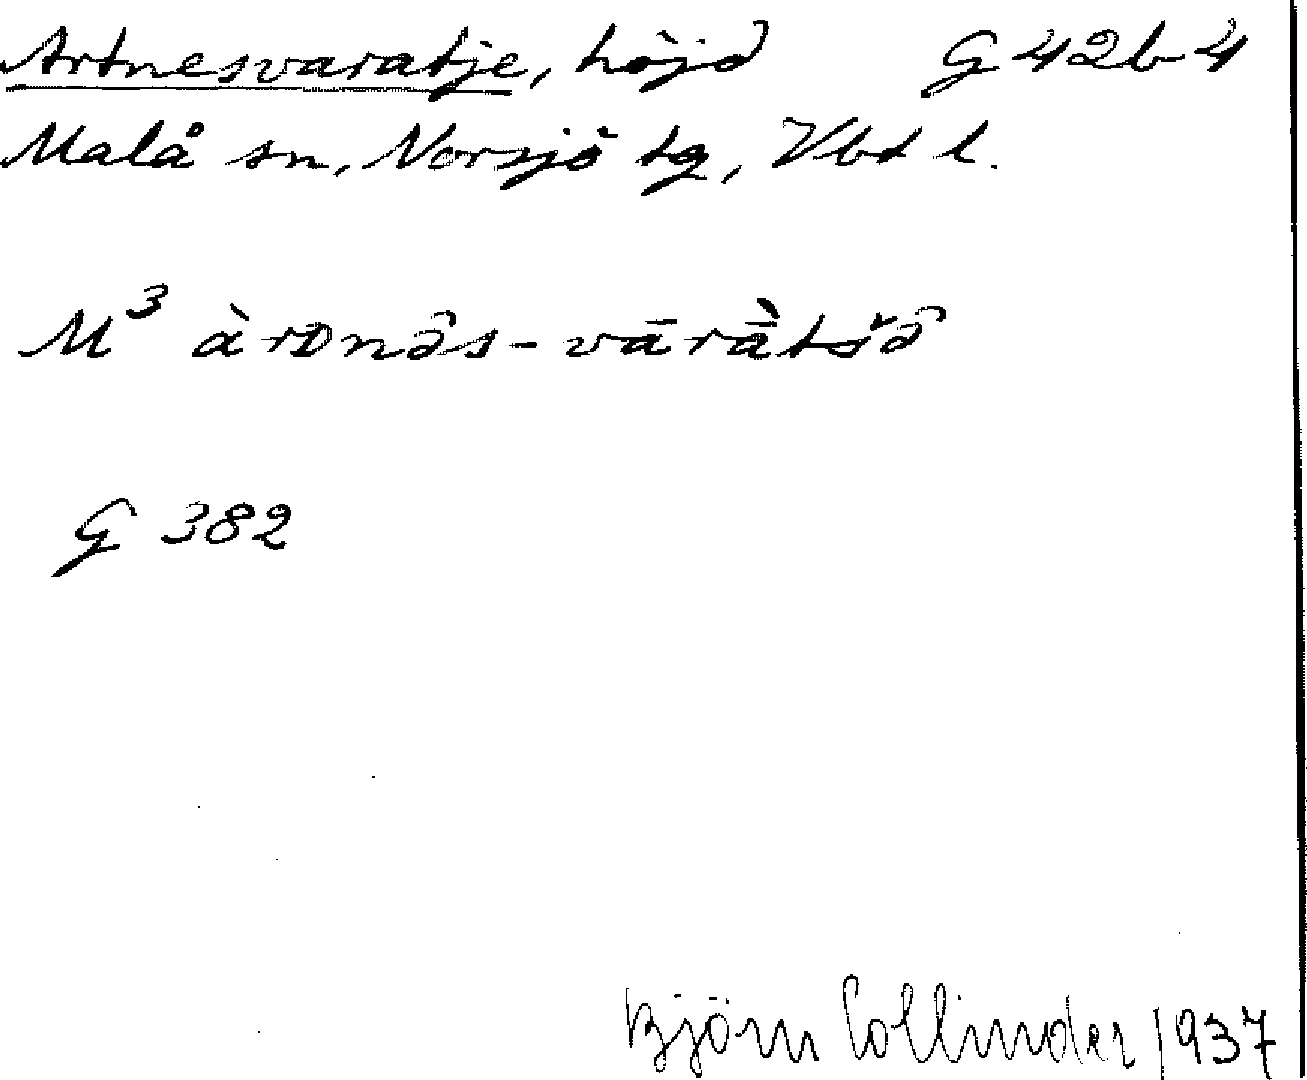 Artnesvaratje, höjd G 42b 4
Malå sn, Norsjö tg, Vbt l.
M³ àrᴅnə̂s-vārā̀tšə̂
G 382
Björn Collinder 1937